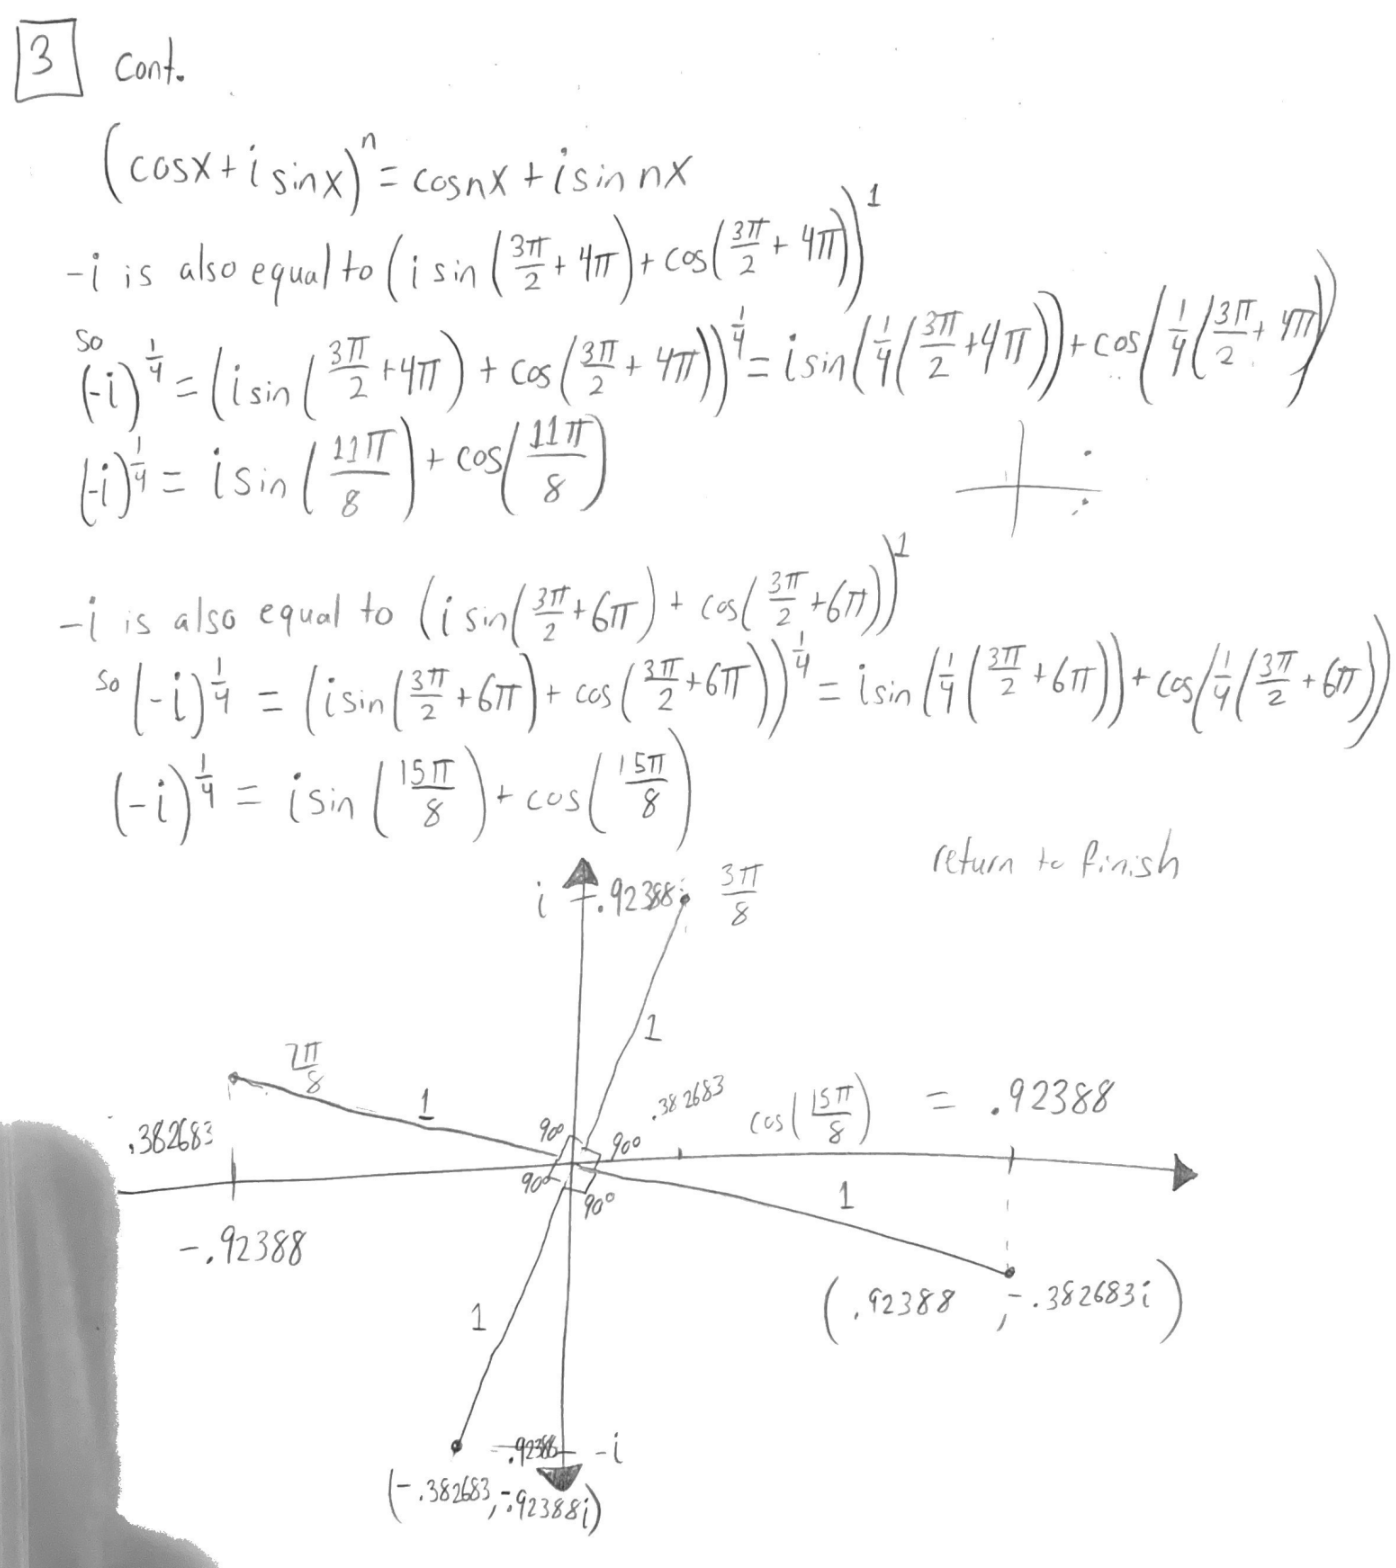 3 cont.
(cosx+i sinx)^n = cosnx + i sin nx
-i is also equal to (i sin(3π/2 + 4π) + cos(3π/2 + 4π))^1
so
(-i)^1/4 = (i sin(3π/2 + 4π) + cos(3π/2 + 4π))^1/4 = i sin(1/4(3π/2 + 4π)) + cos(1/4(3π/2 + 4π))
(-i)^1/4 = i sin(11π/8) + cos(11π/8)
-i is also equal to (i sin(3π/2 + 6π) + cos(3π/2 + 6π))^1
so (-i)^1/4 = (i sin(3π/2 + 6π) + cos(3π/2 + 6π))^1/4 = i sin(1/4(3π/2 + 6π)) + cos(1/4(3π/2 + 6π))
(-i)^1/4 = i sin(15π/8) + cos(15π/8)
return to finish
i .92388i 3π/8
1
7π/8
1
.382683
.382683 cos(15π/8) = .92388
90° 90°
90° 90°
1
-.92388
(.92388, -.382683i)
1
-.92388 -i
(-.382683, -.92388i)